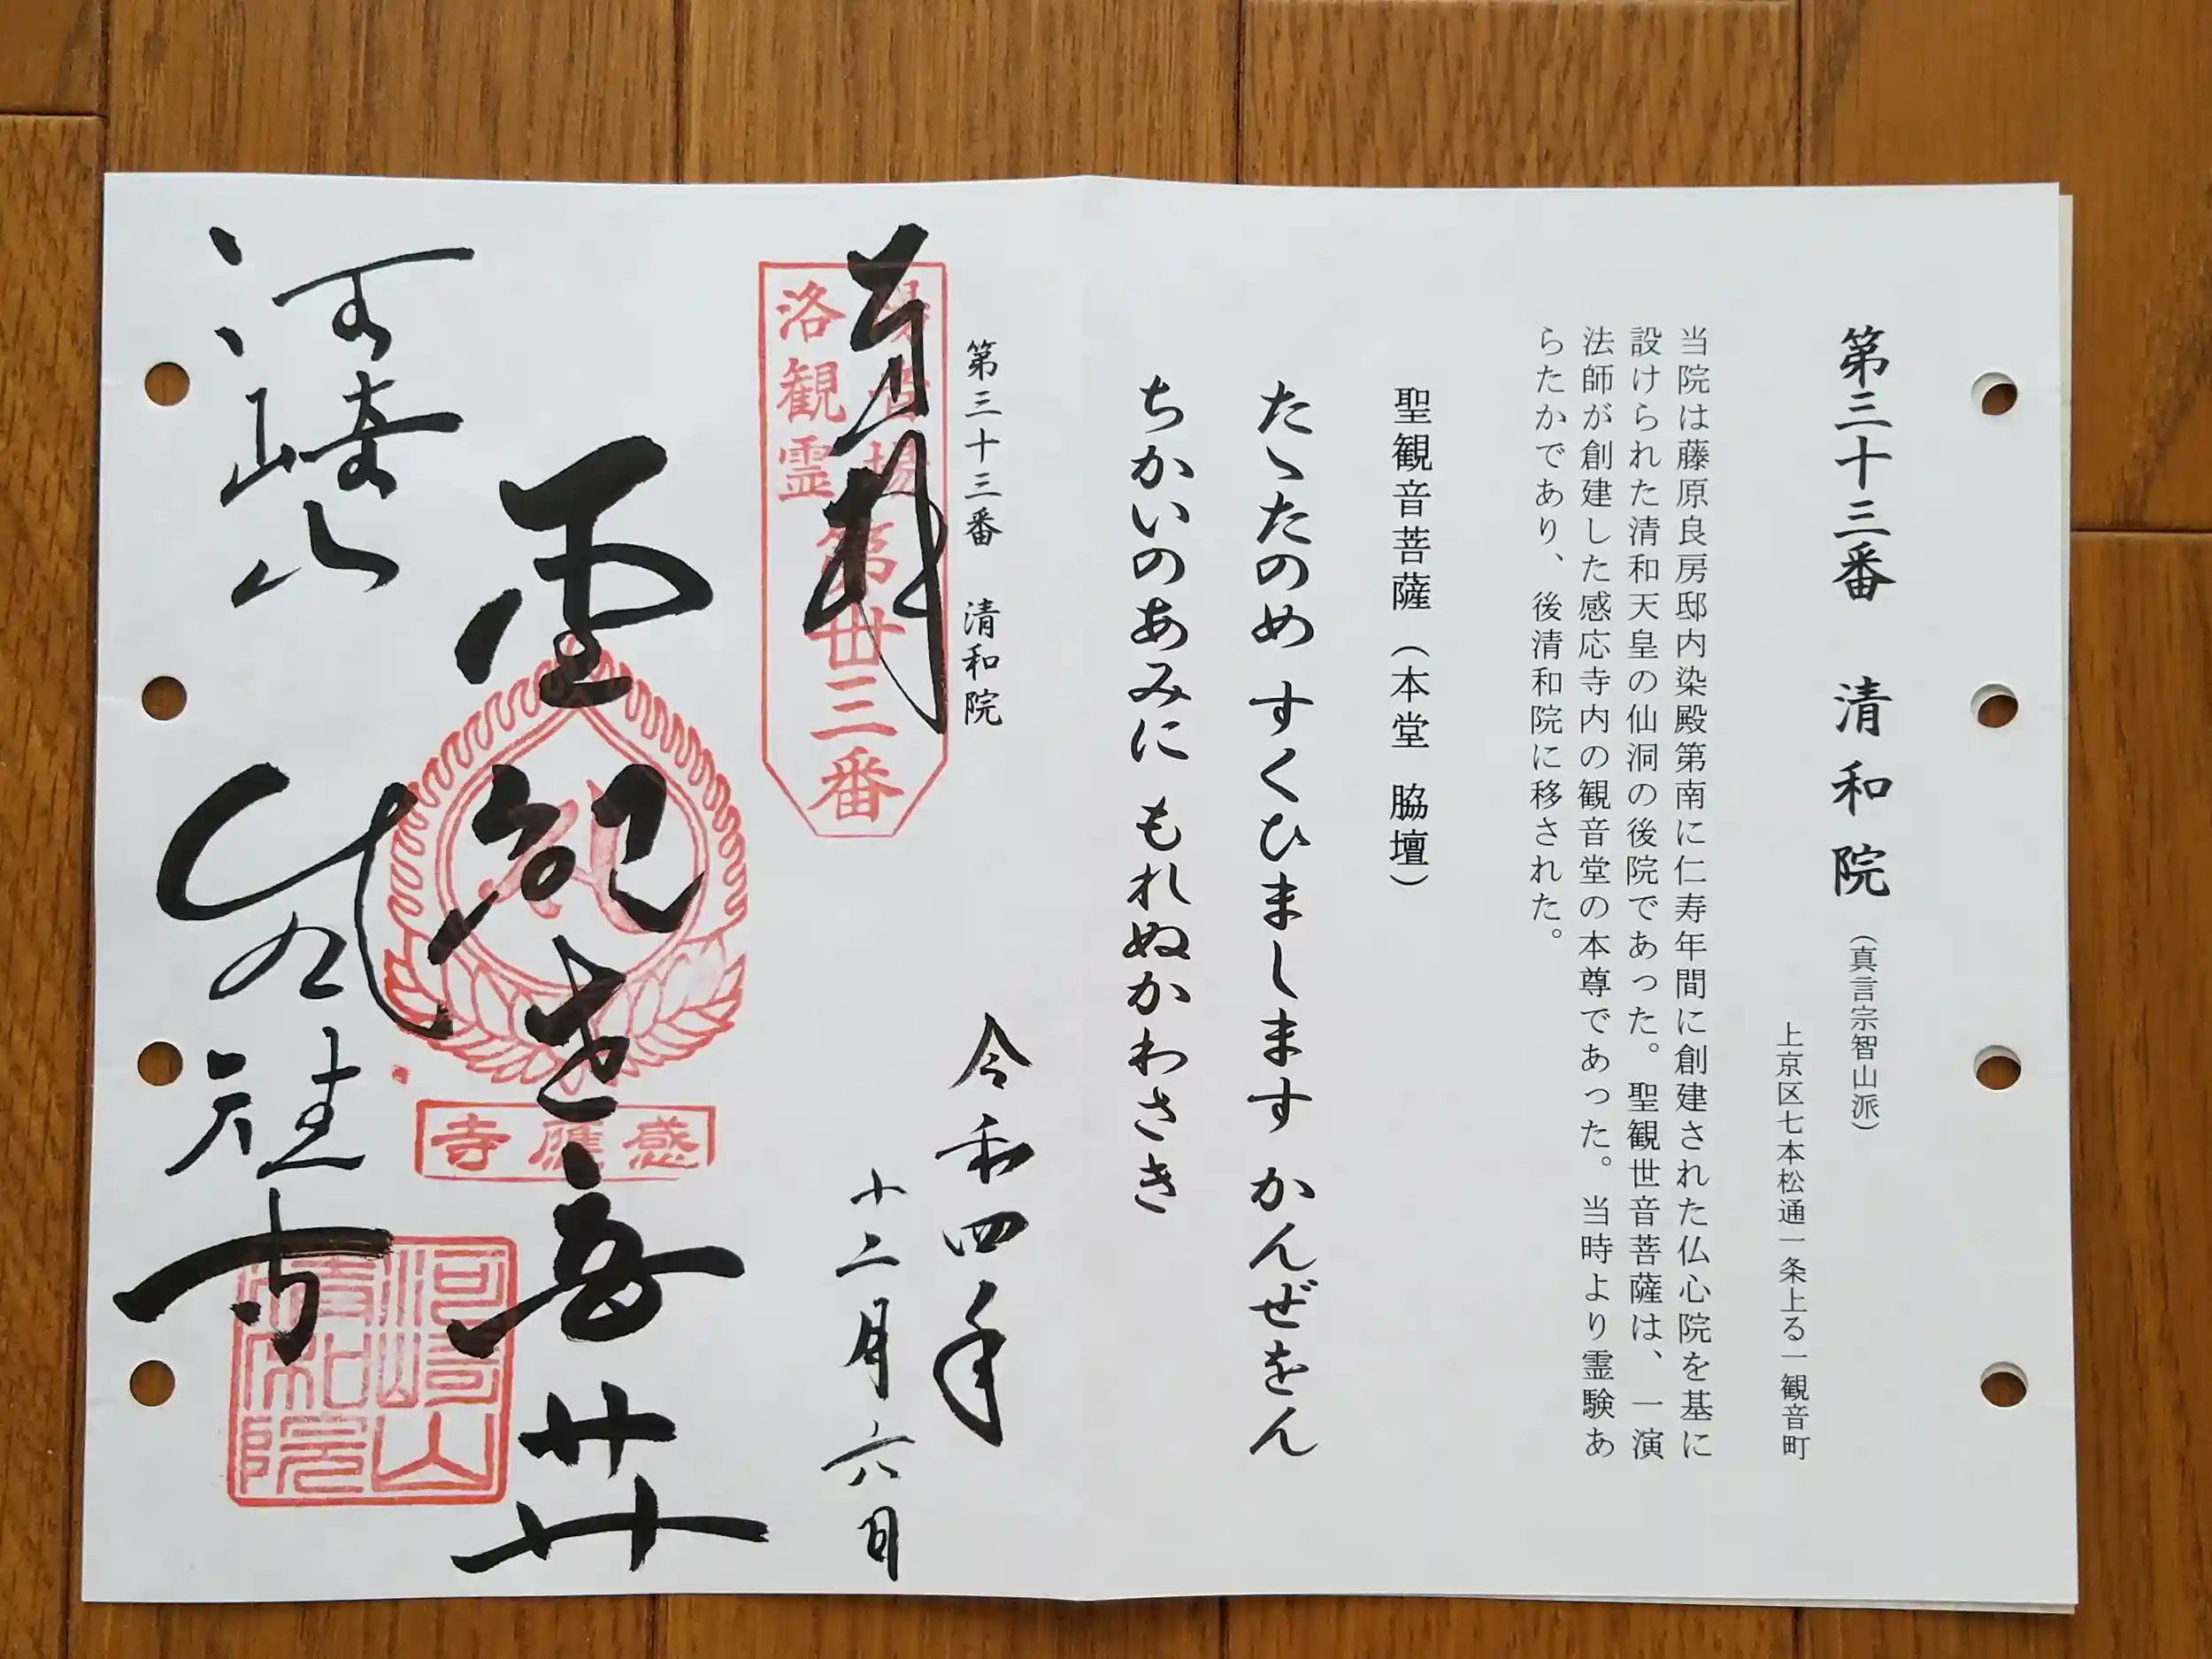 第三十三番 清和院（真言宗智山派）
上京区七本松通一条上る一観音町
当院は藤原良房邸内染殿第南に仁寿年間に創建された仏心院を基に
設けられた清和天皇の仙洞の後院であった。聖観世音菩薩は、一演
法師が創建した感応寺内の観音堂の本尊であった。当時より霊験あ
らたかであり、後清和院に移された。
聖観音菩薩（本堂 脇壇）
たゝたのめ すくひまします かんぜをん
ちかいのあみに もれぬかわさき
第三十三番 清和院
令和四年
十二月六日
奉拝
洛陽観音霊場
第卅三番
聖観世音菩薩
感應寺
河崎山
河崎山清和院